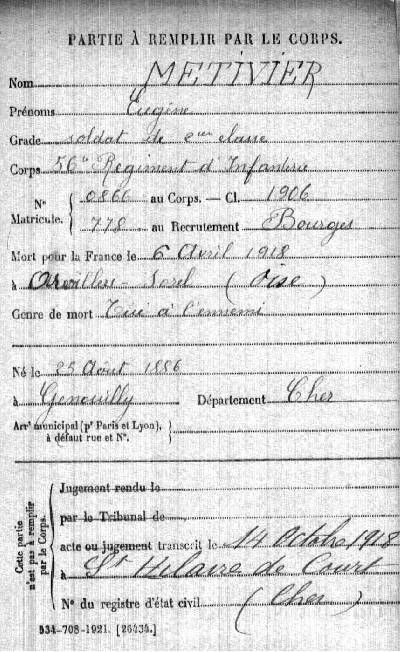 PARTIE À REMPLIR PAR LE CORPS.
Nom METIVIER
Prénoms Eugène
Grade soldat de 2eme classe
Corps 56e Régiment d'Infanterie
N° Matricule. { 0866 au Corps. — Cl. 1906
778 au Recrutement Bourges
Mort pour la France le 6 Avril 1918
à Orvillers-Sorel (Oise)
Genre de mort Tué à l'ennemi
Né le 25 Août 1886
à Genouilly Département Cher
Arrt municipal (pr Paris et Lyon), à défaut rue et N°. }
Cette partie n'est pas à remplir par le Corps.
Jugement rendu le
par le Tribunal de
acte ou jugement transcrit le 14 Octobre 1918
à St Hilaire de Court
N° du registre d'état civil (Cher)
534-708-1921. [26434.]